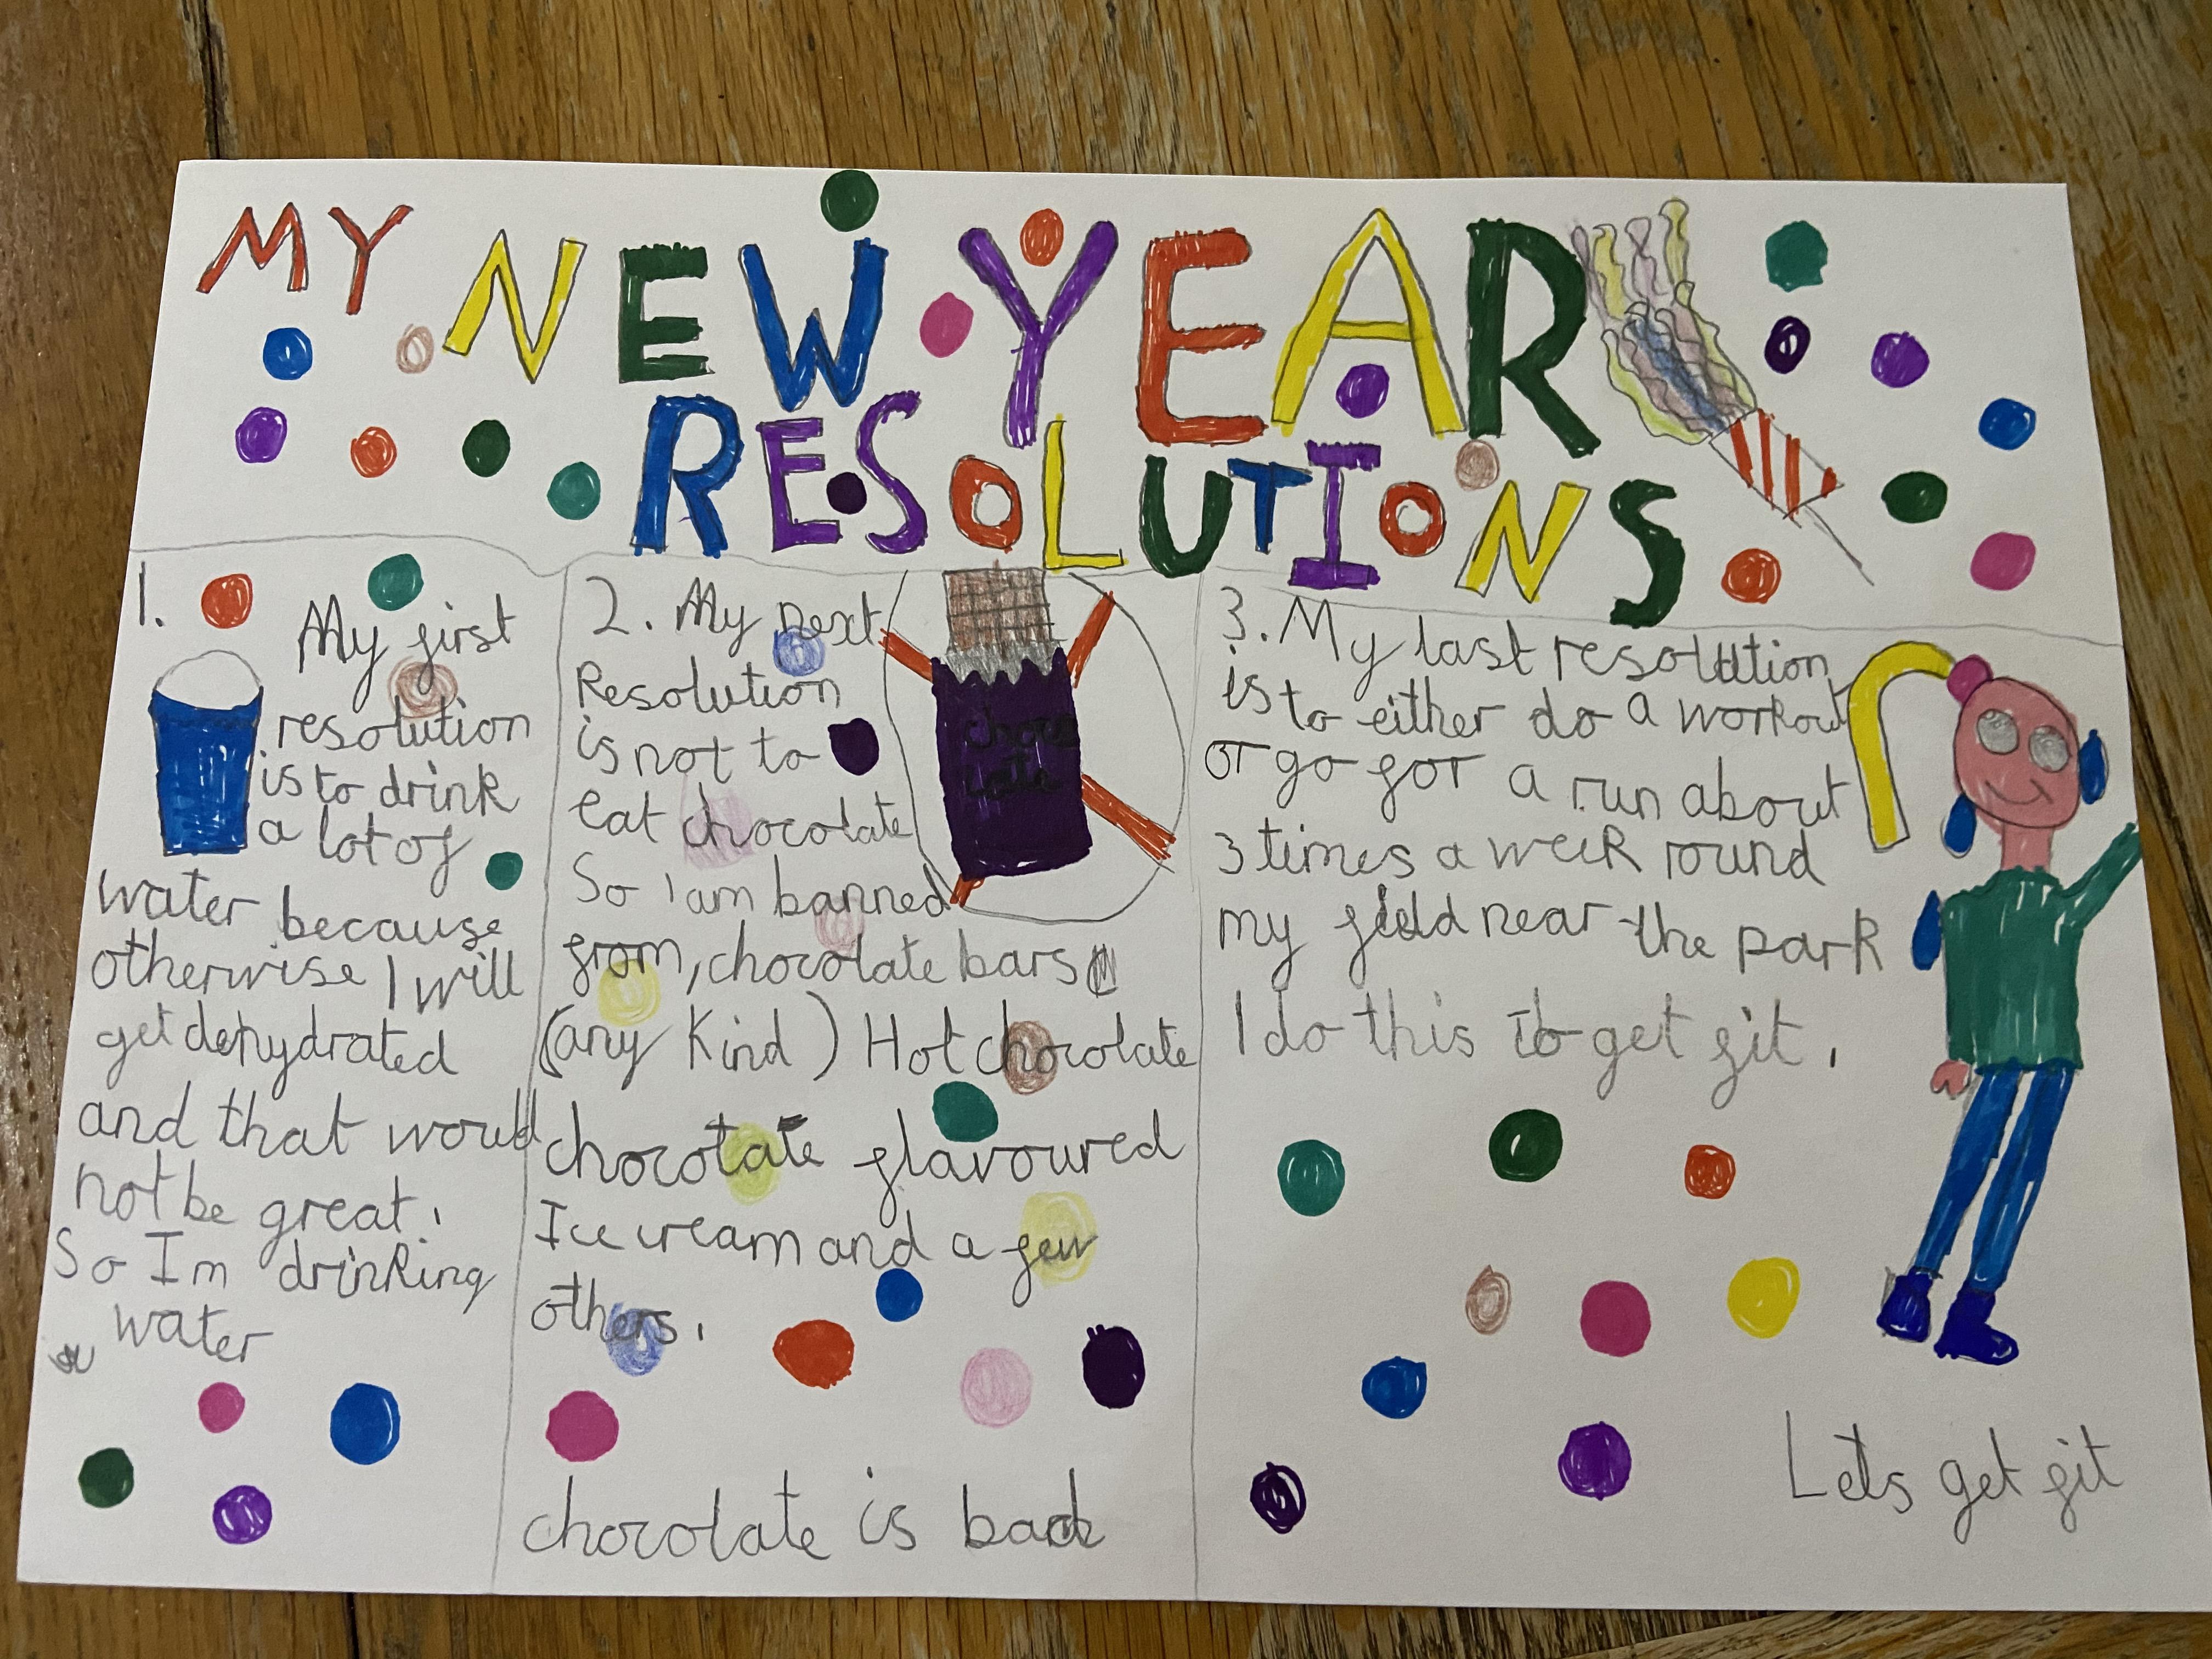 MY NEW YEAR
RESOLUTIONS
1.
My first
resolution
is to drink
a lot of
water because
otherwise I will
get dehydrated
and that would
not be great.
So Im drinking
water
2. My next
Resolution
is not to
eat chocolate
So I am banned
from, chocolate bars
(any Kind) Hot chocolate
chocolate flavoured
Ice cream and a few
others.
chocolate is bad
choco
late
3. My last resolution
is to either do a workout
or go for a run about
3 times a week round
my field near the park
I do this to get fit.
Lets get fit